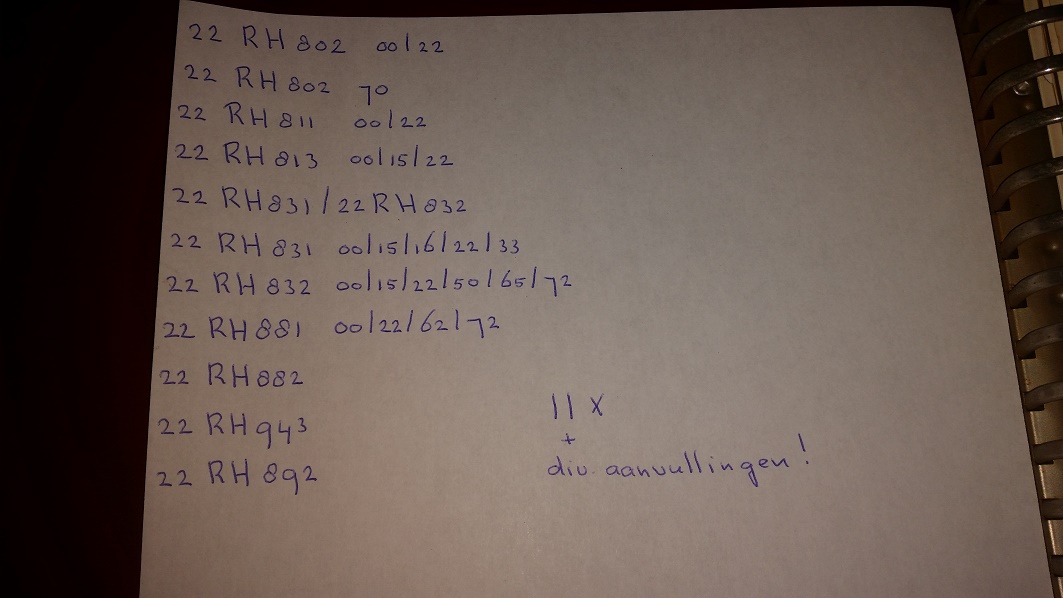 22 RH 802 00/22
22 RH 802 70
22 RH 811 00/22
22 RH 813 00/15/22
22 RH 831 / 22 RH 832
22 RH 831 00/15/16/22/33
22 RH 832 00/15/22/50/65/72
22 RH 881 00/22/62/72
22 RH 882
22 RH 943
22 RH 892
11 x
+
div. aanvullingen!